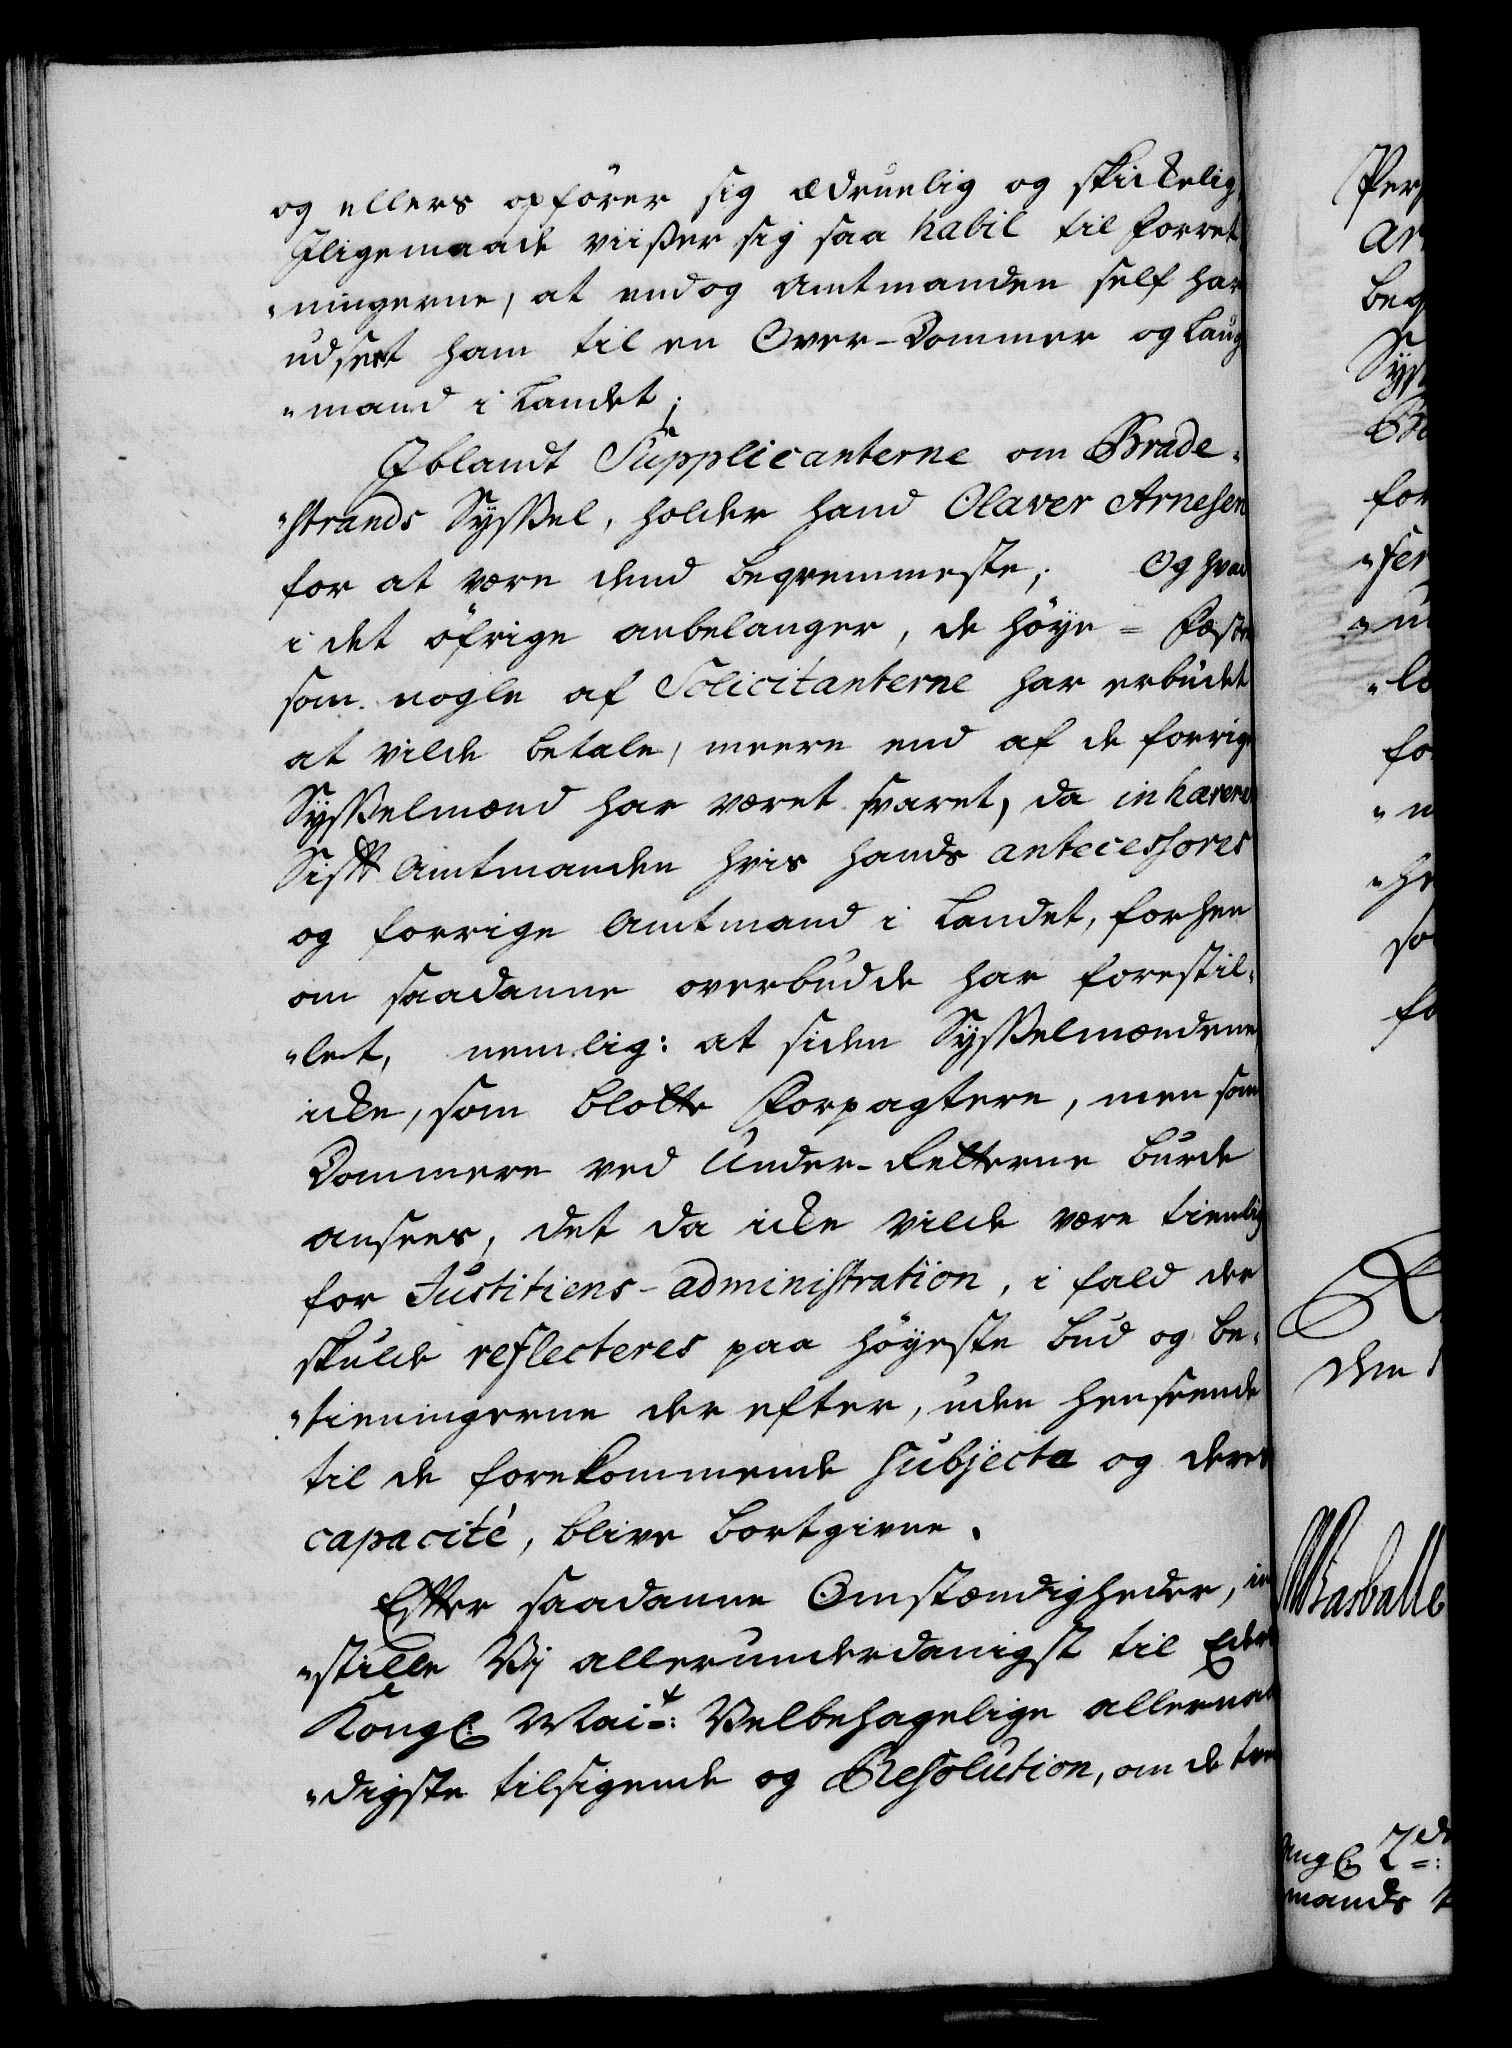 og ellers opfører sig ædruelig og skickelig,
Jligemaade viiser sig saa habil til forret
"ningerne, at endog Amtmanden self har
udseet ham til en Over-Dommer og Laug
"mand i Landet;
Jblandt Supplicanterne om Brade-
"strands Syssel, holder hand Olaver Arnesen
for at være dend beqvemmeste; Og hvad
i det öfrige anbelanger, de höye - Fæste
som nogle af Solicitanterne har erbudet
at vilde betale, meere end af de forrige
Sysselmænd har været svaret, da inhærere
Sistt Amtmanden hvis hands antecessores
og forrige Amtmænd i Landet, forhen
om saadanne overbudde har forestil-
"let, nemlig: at siden Sysselmændene
icke, som blotte Forpagtere, men som
Dommere ved Under-Retterne burde
ansees, det da icke vilde være tienlig
for Justitiens-administration, i fald der
skulde reflecteres paa höyeste bud og be-
"tieningerne der efter, uden henseende
til de forekommende Subjecta og deres
capacité, blive bortgivne.
Efter saadanne Omstændigheder, in
"stille Vj allerunderdanigst til Eders
Kongl. Mait: Velbehagelige allernaa
"digste tilsigende og Resolution, om de tre